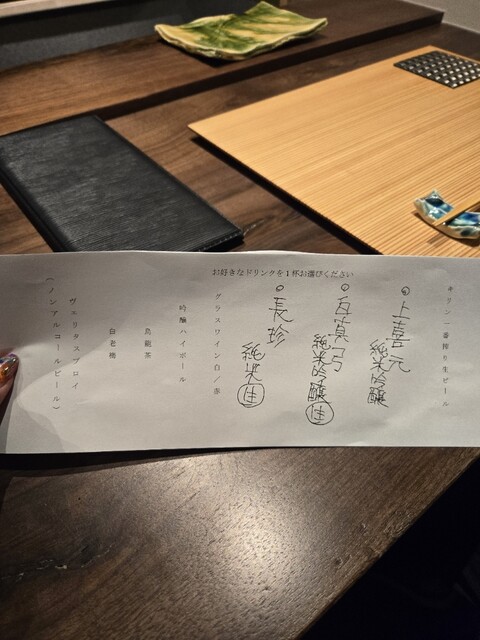 お好きなドリンクを1杯お選びください
キリン一番搾り生ビール
上喜元
純米吟醸
百寞弓
純米吟醸生
長珍
純米生
グラスワイン白/赤
吟醸ハイボール
烏龍茶
白老梅
ヴェリタスブロイ
(ノンアルコールビール)